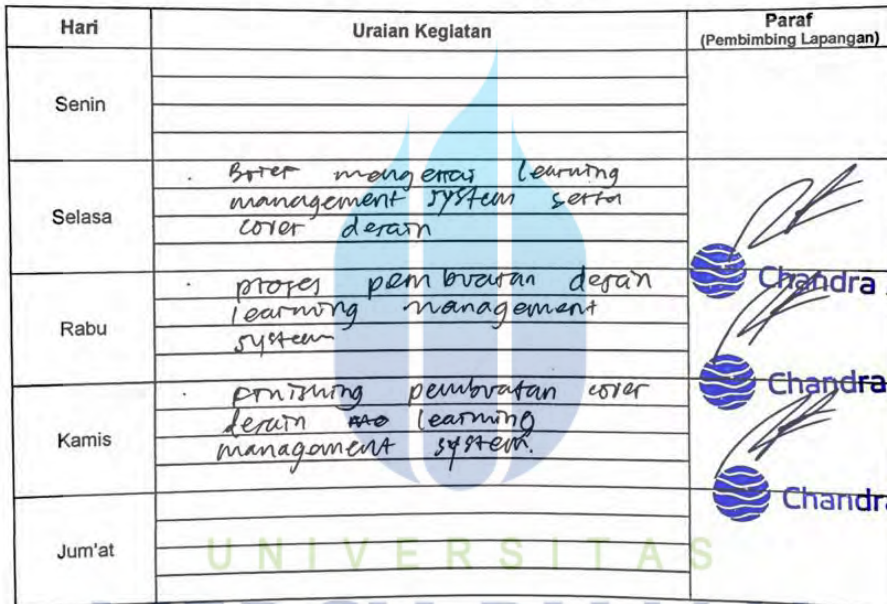 Hari Uraian Kegiatan Paraf
(Pembimbing Lapangan)
Senin
Selasa
. Brief mengenai learning
management system serta
cover desain
Chandra
Rabu
. proses pembuatan desain
learning management
system
Chandra
Kamis
. finishing pembuatan cover
desain learning
management system.
Chandra
Jum'at
UNIVERSITAS